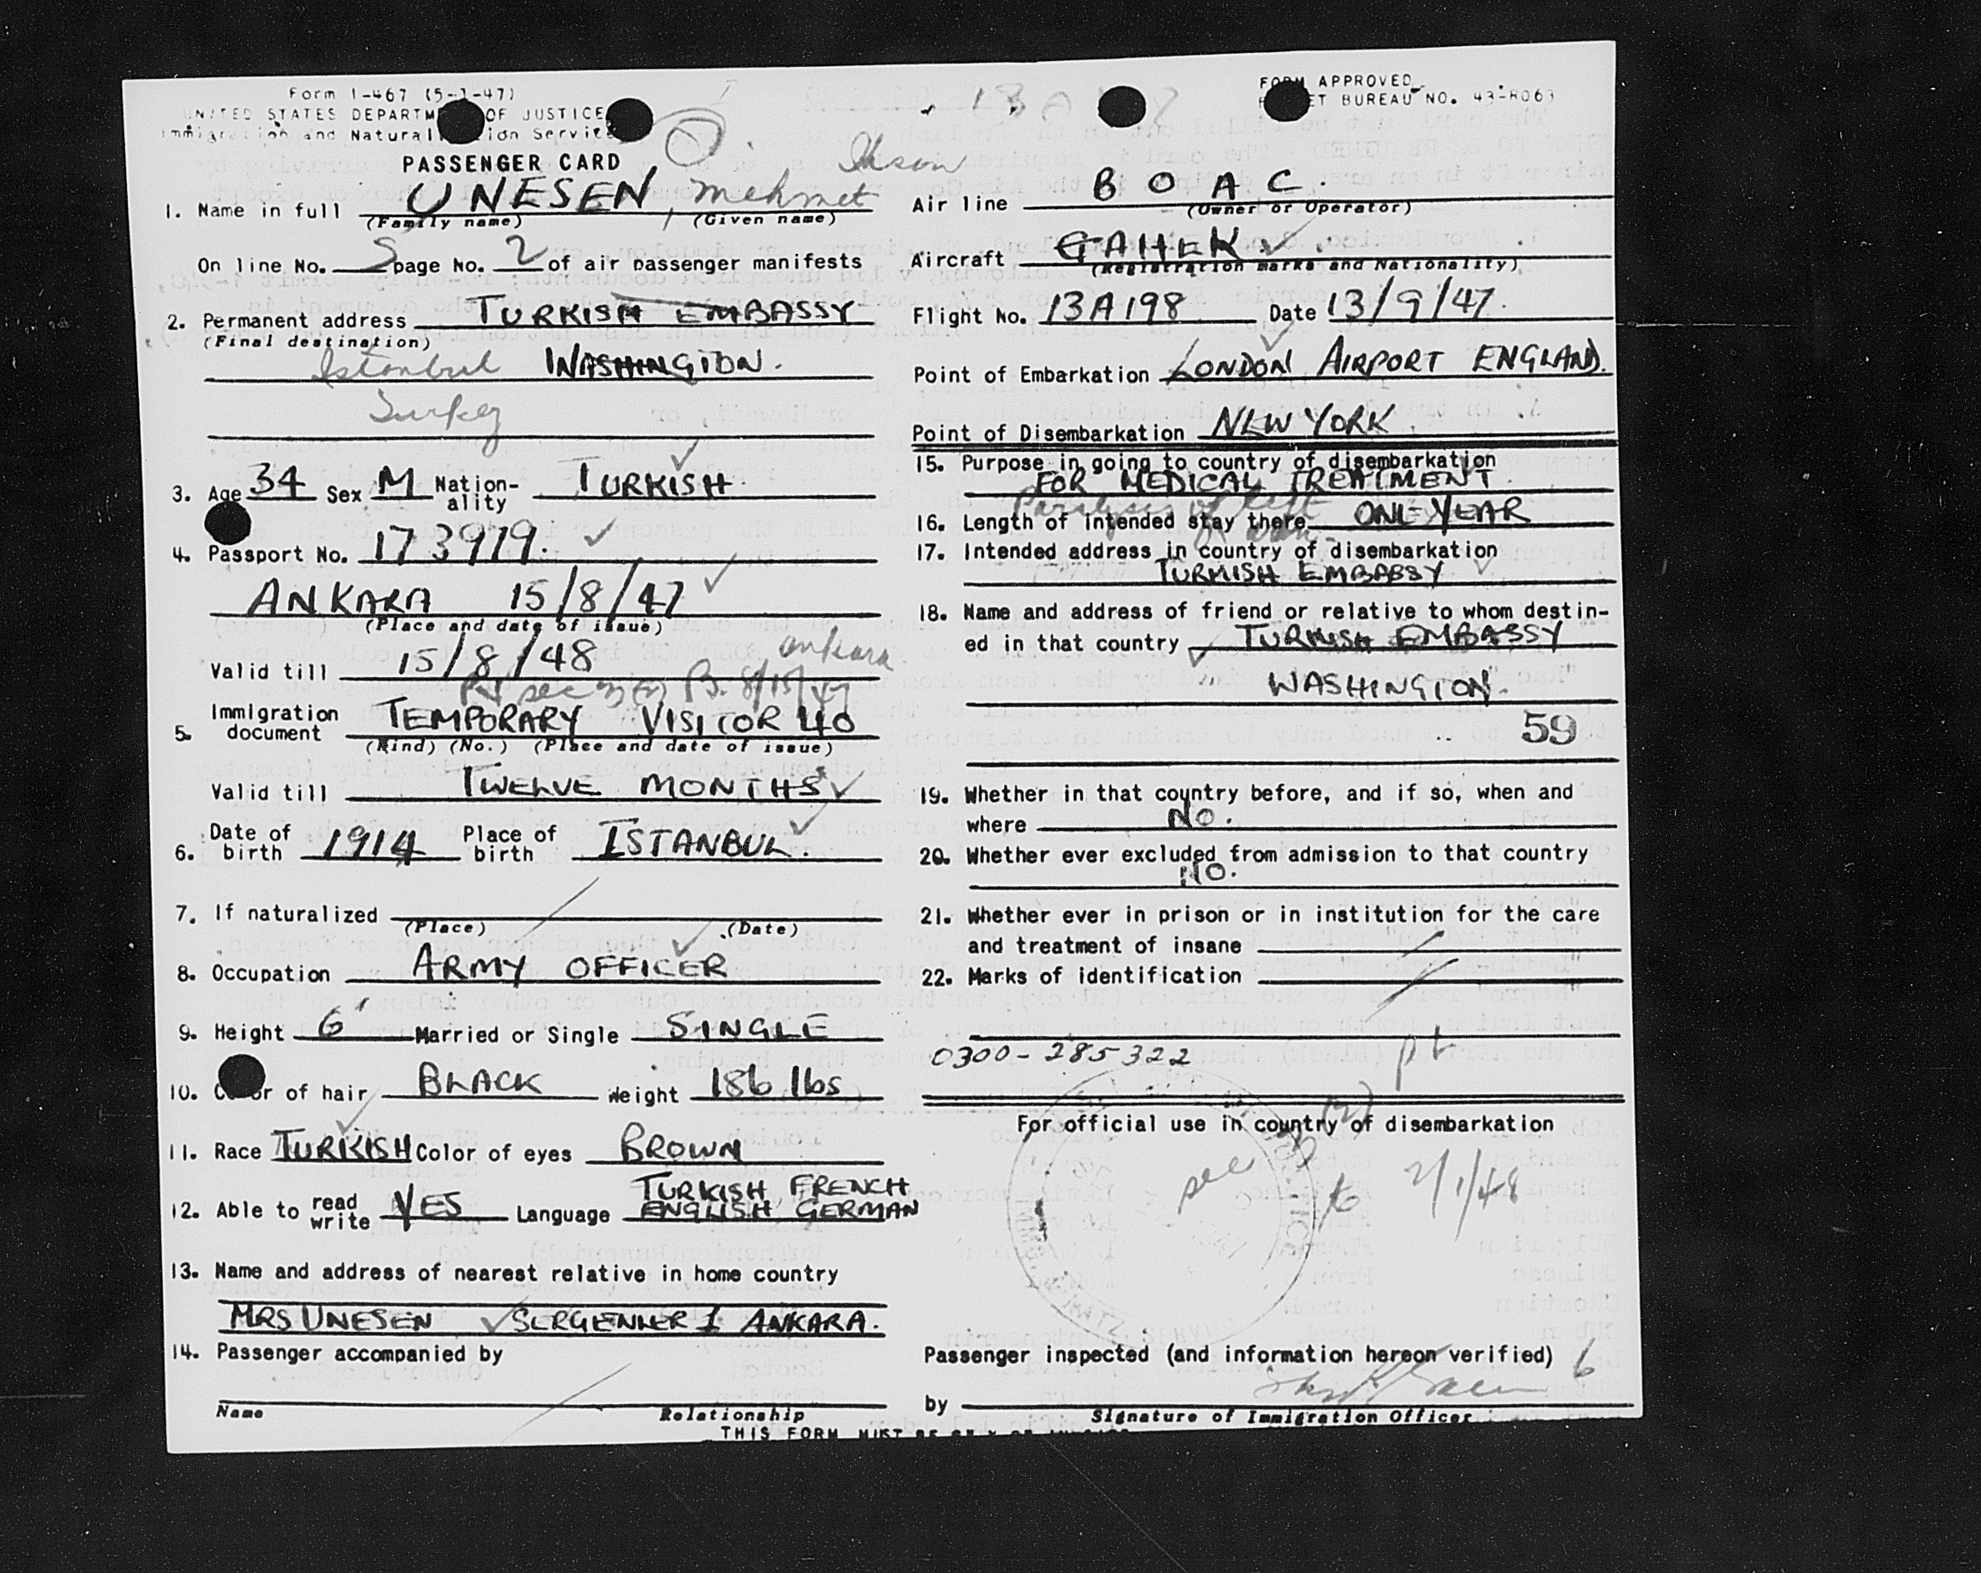 Form I-467 (5-1-47)
UNITED STATES DEPARTM OF JUSTICE
Immigration and Natural ion Service
PASSENGER CARD
1. Name in full UNESEN, Mehmet
(Family name) (Given name)
On line No. 5 page No. 2 of air passenger manifests
2. Permanent address TURKISH EMBASSY
(Final destination)
Istanbul WASHINGTON.
Turkey
3. Age 34 Sex M Nation-ality TURKISH.
4. Passport No. 173979.
ANKARA 15/8/47
(Place and date of issue)
Valid till 15/8/48
ankara
8/15/47
5. Immigration document TEMPORARY VISITOR 40
(Kind) (No.) (Place and date of issue)
Valid till TWELVE MONTHS
6. Date of birth 1914 Place of birth ISTANBUL.
7. If naturalized
(Place) (Date)
8. Occupation ARMY OFFICER
9. Height 6' Married or Single SINGLE
10. C or of hair BLACK Weight 186 lbs
11. Race TURKISH Color of eyes BROWN
12. Able to read write YES Language TURKISH FRENCH
ENGLISH GERMAN
13. Name and address of nearest relative in home country
MRS UNESEN ANKARA.
14. Passenger accompanied by
Name Relationship
THIS FORM MUST BE
FORM APPROVED
ET BUREAU NO. 43-R063
Air line B O A C.
(Owner or Operator)
Aircraft GAHEK
(Registration marks and Nationality)
Flight No. 13A198 Date 13/9/47.
Point of Embarkation LONDON AIRPORT ENGLAND.
Point of Disembarkation NEW YORK.
15. Purpose in going to country of disembarkation
FOR MEDICAL TREATMENT.
Paralysis of left
16. Length of intended stay there ONE YEAR
17. Intended address in country of disembarkation
TURKISH EMBASSY
18. Name and address of friend or relative to whom destin-
ed in that country TURKISH EMBASSY
WASHINGTON.
59
19. Whether in that country before, and if so, when and
where NO.
20. Whether ever excluded from admission to that country
NO.
21. Whether ever in prison or in institution for the care
and treatment of insane
22. Marks of identification
0300-285322
For official use in country of disembarkation
see
2/1/48
Passenger inspected (and information hereon verified) 6
by
Signature of Immigration Officer